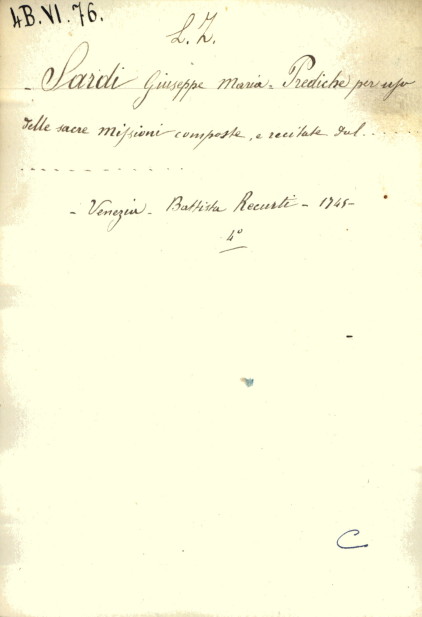 4B.VI.76.
L.Z.
- Sardi Giuseppe Maria - Prediche per uso
delle sacre missioni composte, e recitate dal......
..............
- Venezia - Battista Recurti - 1745 -
4°
C